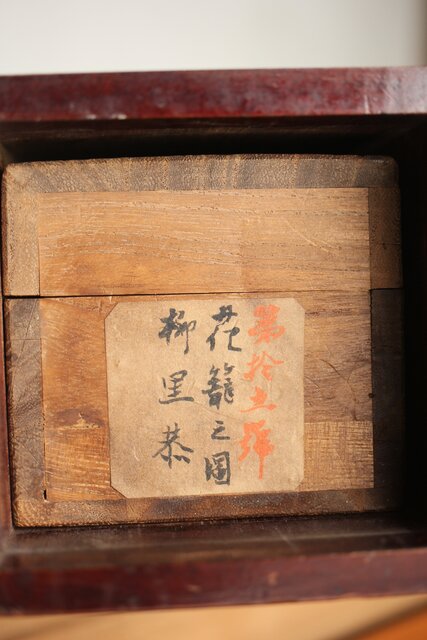 第拾五號
花籠之圖
柳里恭